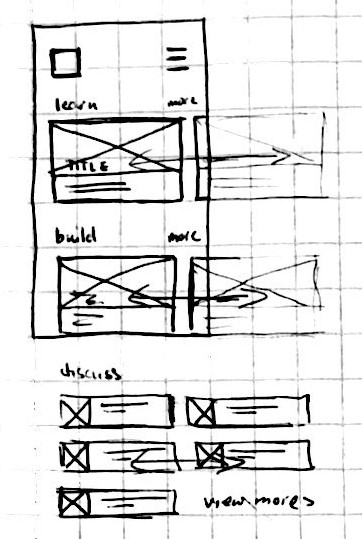 learn more
TITLE
build more
discuss
view more >